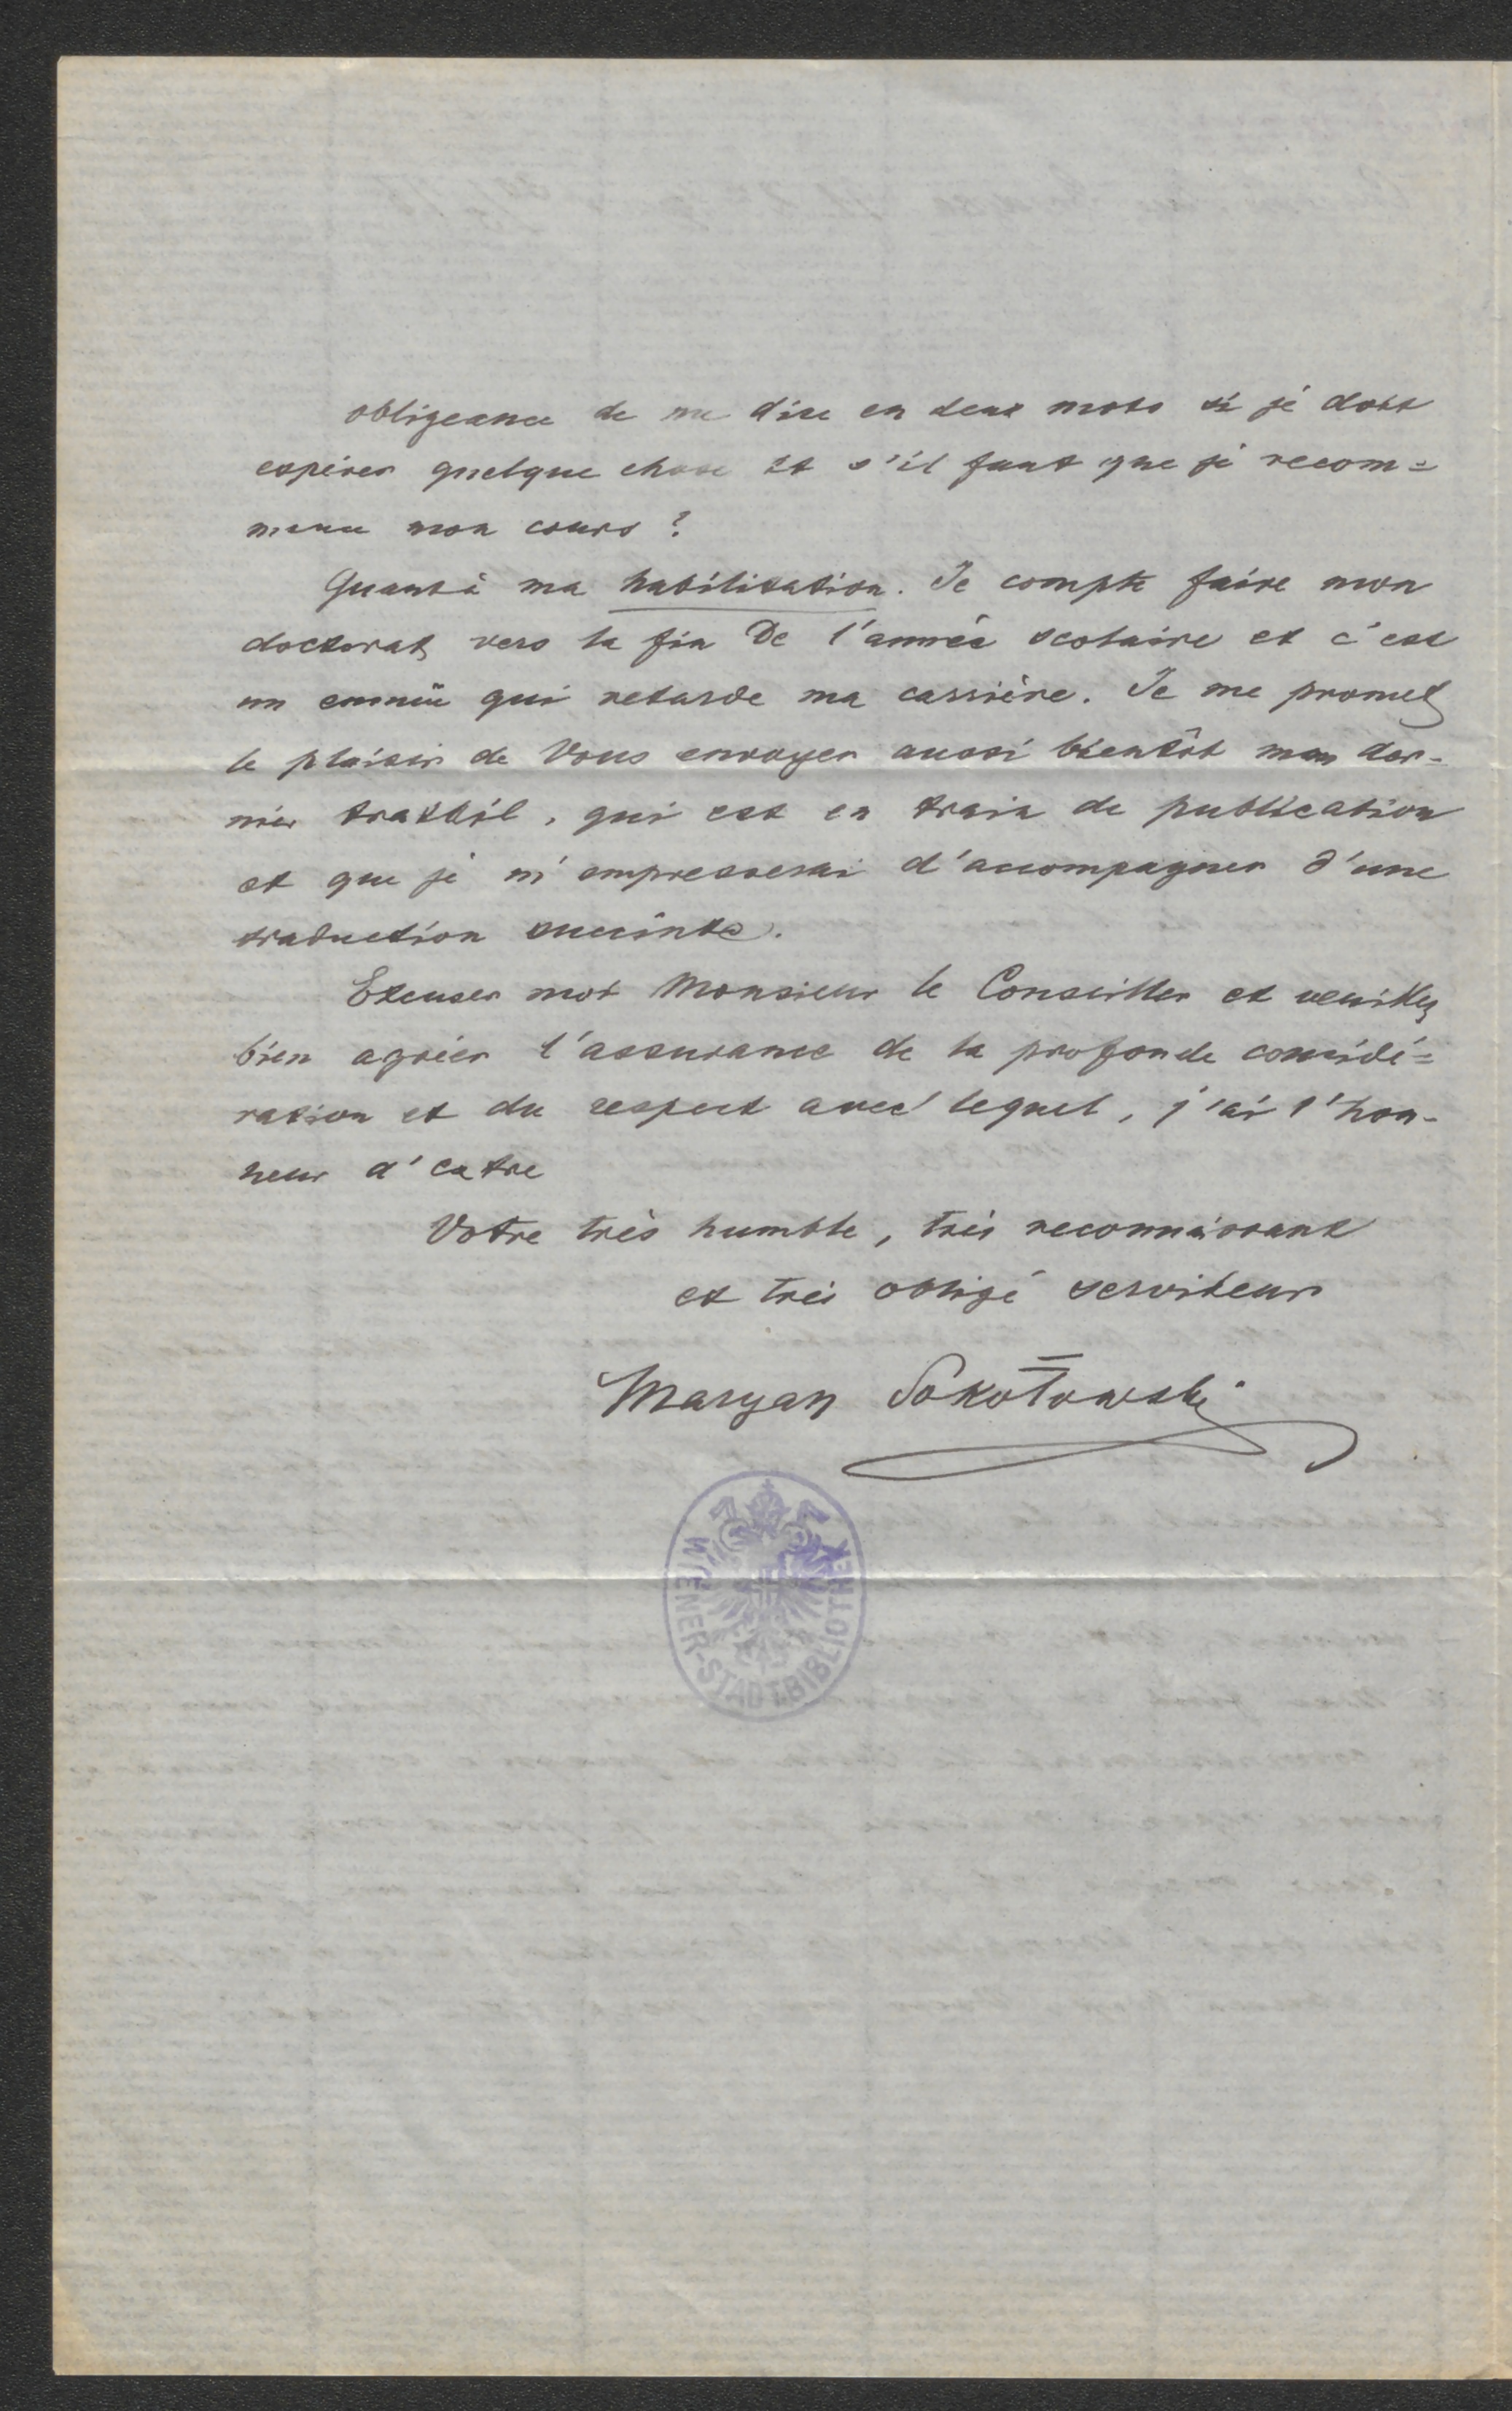 obligeance de me dire en deux mots si je doit
espérer quelque chose et s'il faut que je recom=
mence mon cours?
Quant à ma habilitation. Je compte faire mon
doctorat vers la fin De l'année scolaire et c'est
un ennui qui retarde ma carrière. Je me promet
le plaisir de Vous envoyer aussi bientôt mon der-
nier travail, qui est en train de publication
et que je m'empresserai d'accompagner d'une
traduction succinte.
Excuser moi Monsieur le Conseiller et veuillez
bien agréer l'assurance de la profonde considé=
ration et du respect avec lequel, j'ai l'hon-
neur d'estre
Votre très humble, très reconnaissant
et très obligé serviteur
Maryan Sokołowski
WIENER-STADT.BIBLIOTHEK